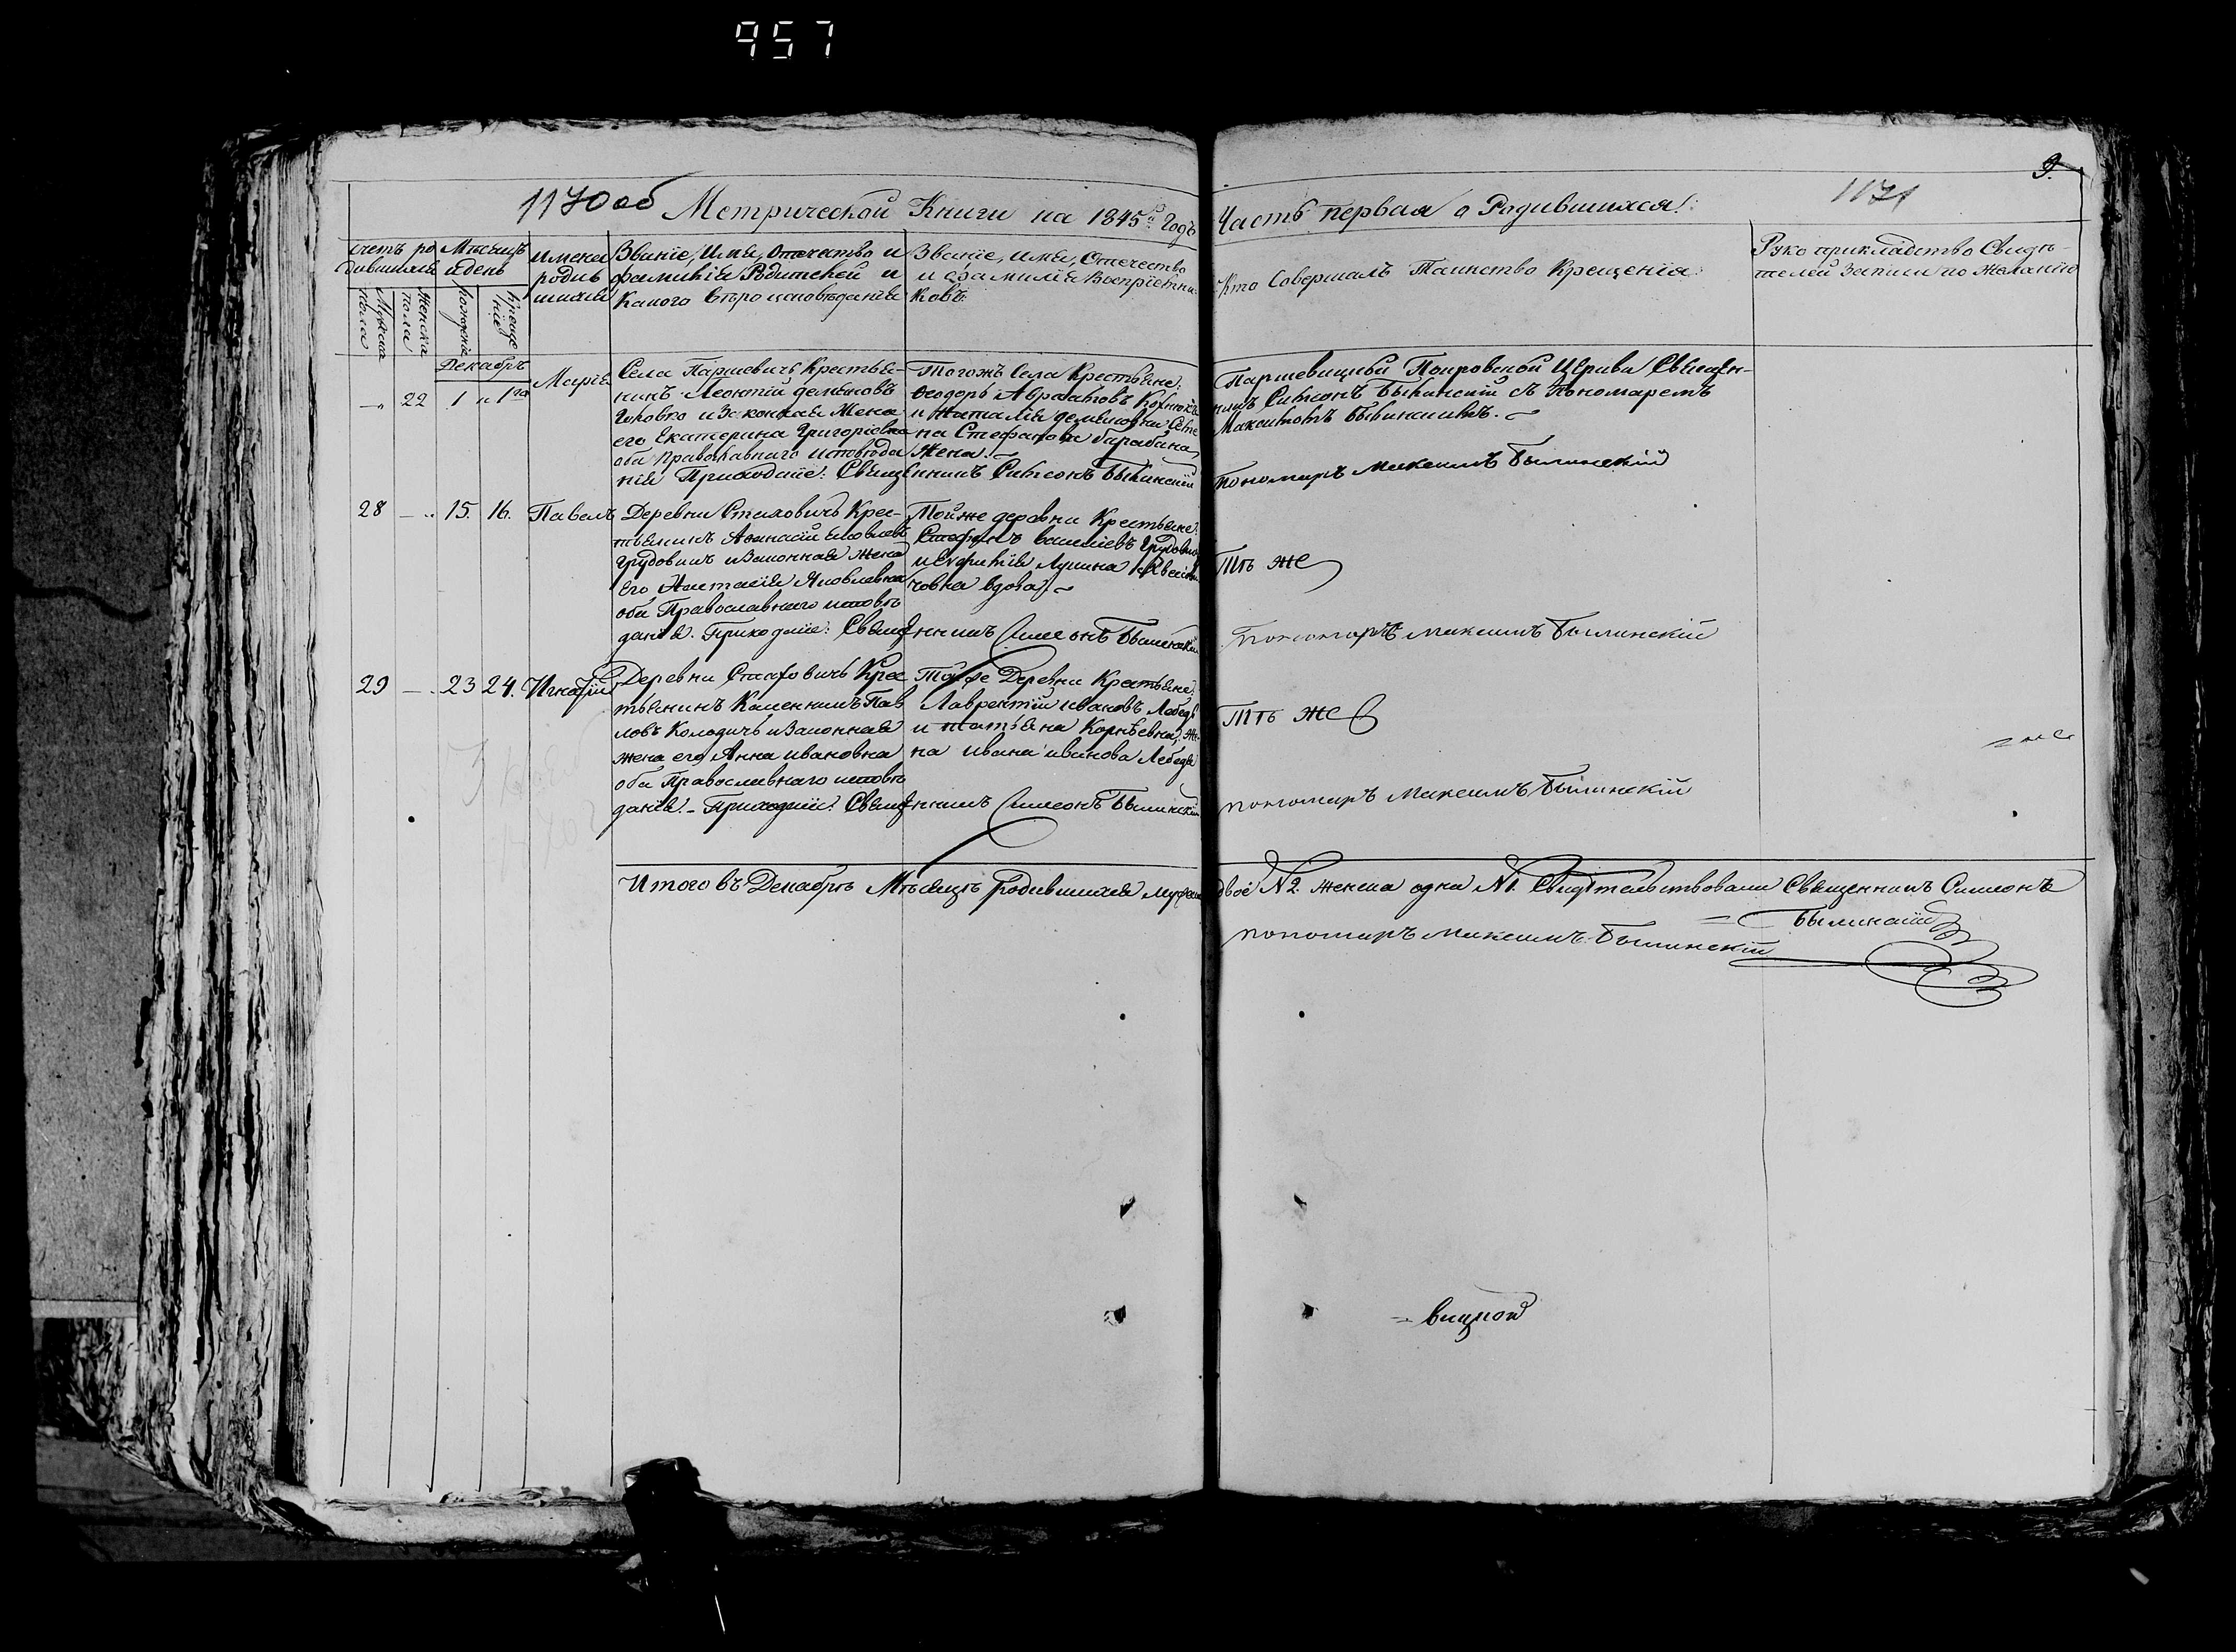 957
9.
1170 об Метрической Книги на 1845й Годъ Часть первая о Родившихся: 1171
Счетъ ро
дившихся
Мужска
пола
Женска
пола
Мѣсяцъ
и день
Рожденіе
Крещеніе
Имена
родив
шихся
Званіе, Имя, Отечество и
фамилія Родителей и
Какого Вѣроисповѣданія
Званіе, имя, Отечество
и фамилія Воспріемни
ковъ
Кто Совершалъ Таинство Крещенія:
Рукоприкладство Свидѣ-
телей записи по желанію
Декабрь
22 1 1го Марія
Села Паршевичъ Крестья-
нинъ Леонтій Демьяновъ
и Законная Жена
его Екатерина Григоріевна
оба Православнаго исповѣда
нія Приходскіе: Священникъ Симеонъ Былинскій
Тогожъ Села Крестьяне:
Ѳеодоръ Авраамовъ
и Наталія Демьяновна
на Стефанова Барабана,
жена.
Паршевицкой Покровской Церкви Священ-
никъ Симеонъ Былинскій съ Пономаремъ
Максимомъ Былинскимъ.
Пономаръ Максимъ Былинскій
28 15. 16. Павелъ
Деревни Стаховичъ Крес-
тьянинъ Аѳанасій Яковлевъ
Грудовикъ и Законная жена
его Анастасія Яковлевна
оба Православнаго исповѣ
данія. Приходскіе: Священникъ Симеонъ Былинскій
Той же деревни Крестьяне:
Стефанъ Василіевъ
и Евфимія Лукина
човна вдова.
Тѣ же
Пономаръ Максимъ Былинскій
29 23 24. Игнатій
Деревни Стаховичъ Крес
тьянинъ Каленникъ Пав
ловъ Колодичъ и Законная
жена его Анна Ивановна
оба Православнаго исповѣ
данія. Приходскіе: Священникъ Симеонъ Былинскій
Той же Деревни Крестьяне:
Лаврентій Ивановъ Лебедь
и Татьяна Корнѣевна, Же-
на Ивана Иванова Лебедя
Тѣ же
пономаръ Максимъ Былинскій
Итого въ Декабрѣ Мѣсяцѣ родившихся мужска двое №2 женска одна №1. Свидѣтельствовали Священникъ Симеонъ
Былинскій
пономаръ Максимъ Былинскій
вицкой